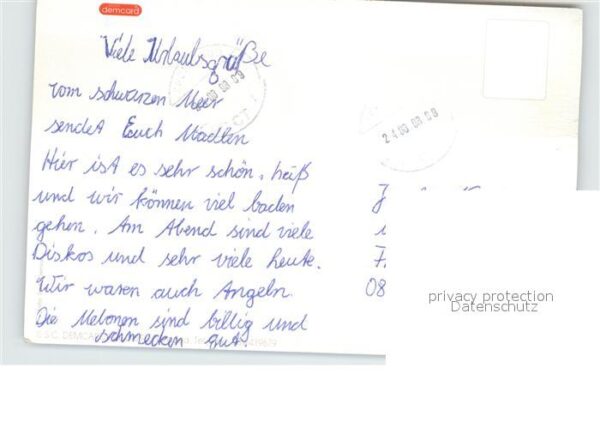 demcard
"Viele Urlaubsgrüße"
vom schwarzen Meer
sendet Euch Madlen
Hier ist es sehr schön, heiß
und wir können viel baden
gehen. Am Abend sind viele
Diskos und sehr viele heute.
Wir waren auch Angeln.
Die Melonen sind billig und
schmecken gut.
08
privacy protection
Datenschutz